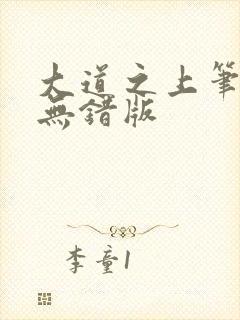 大道之上筆
無錯版
李童1